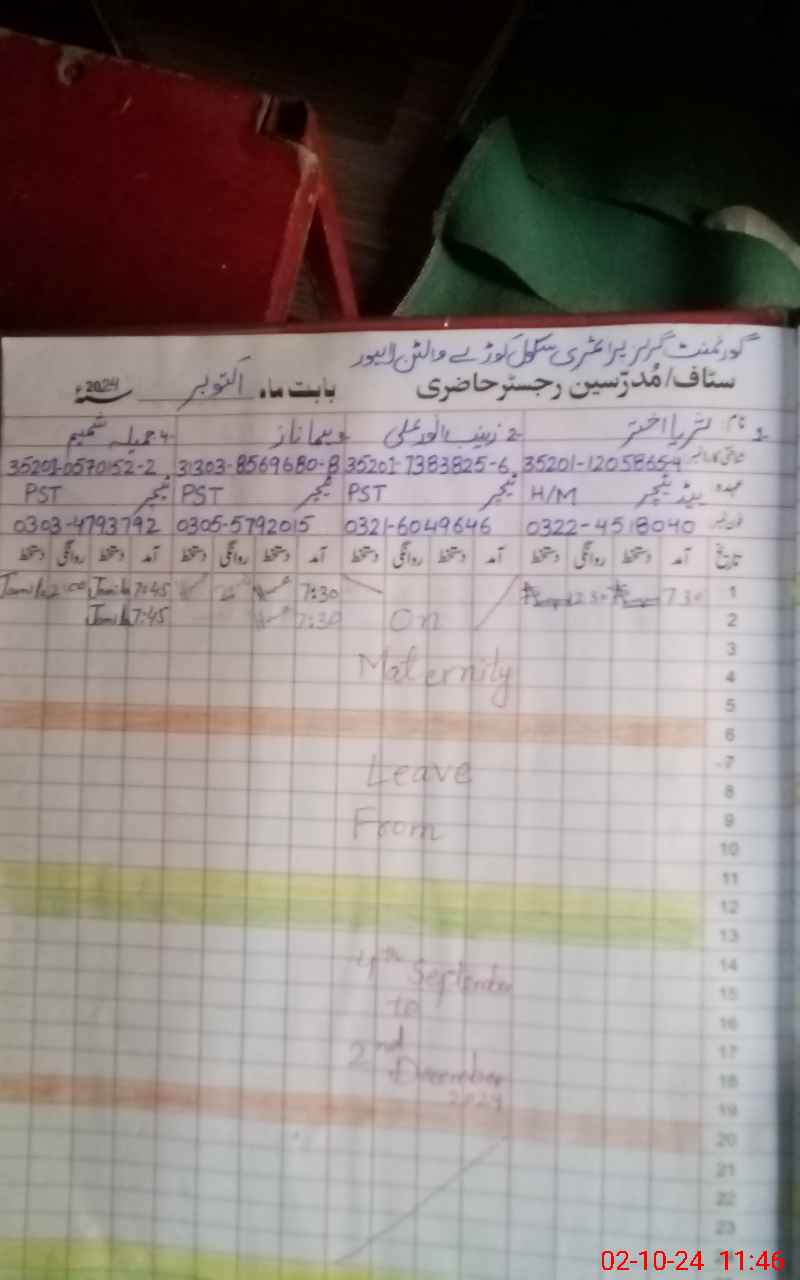 گورنمنٹ گرلز پرائمری سکول کوڑے والٹن لاہور
سٹاف/مُدرّسین رجسٹر حاضری بابت ماہ اکتوبر 2024ء
نام 1 ثریا اختر 2 زینب انور علی 3 سیما ناز 4 جمیلہ شمیم
35201-12058654 35201-7383825-6 31303-8569680-8 35201-0570152-2
عہدہ ہیڈ ٹیچر H/M ٹیچر PST ٹیچر PST ٹیچر PST
فون نمبر 0322-4518040 0321-6049646 0305-5792015 0303-4793792
تاریخ آمد دستخط روانگی دستخط آمد دستخط روانگی دستخط آمد دستخط روانگی دستخط آمد دستخط روانگی دستخط
1 7 30 12 30 7:30 7:45 Jamila 2:00 Jamila
2 On 7:30 7:45 Jamila
3
4 Maternity
5
6
7
8 Leave
9
10 From
11
12
13
14
15 4th September
16 to
17
18 2nd December
19 2024
20
21
22
23
02-10-24 11:46